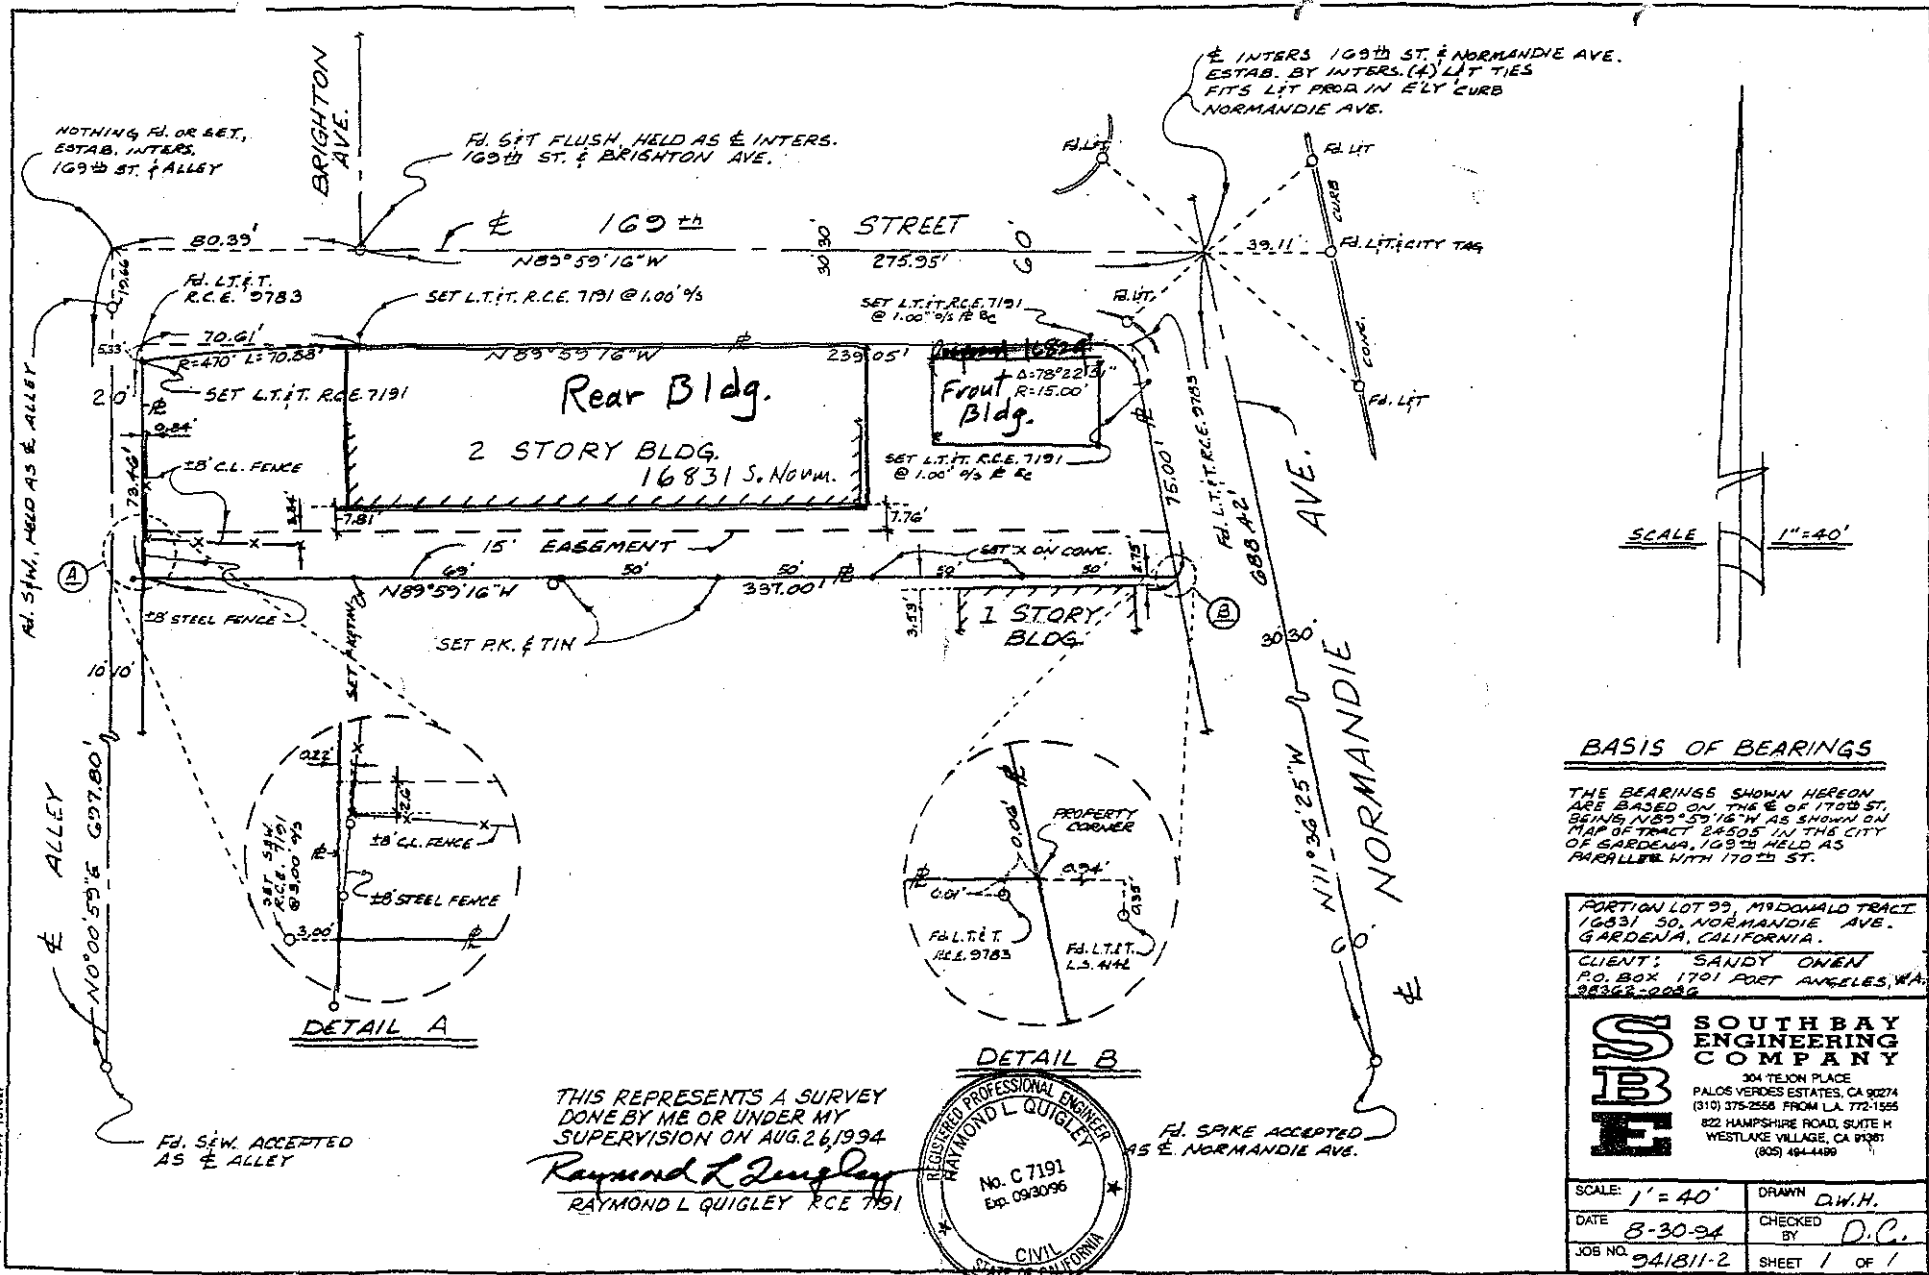 BRIGHTON
AVE.
NOTHING Fd. OR SET,
ESTAB. INTERS.
169th ST. & ALLEY
Fd. S&T FLUSH, HELD AS ℄ INTERS.
169th ST. & BRIGHTON AVE.
℄ INTERS 169th ST. & NORMANDIE AVE.
ESTAB. BY INTERS. (4) L&T TIES
FITS L&T PROD IN E'LY CURB
NORMANDIE AVE.
Fd. L&T
Fd. L&T
CURB
39.11'
Fd. L&T & CITY TAG
CONC.
Fd. L&T
Fd. L&T
80.39'
℄ 169th STREET
N89°59'16"W
30' 30'
275.95'
60'
19.66'
Fd. L.T.&T.
R.C.E. 9783
SET L.T.&T. R.C.E. 7191 @ 1.00' o/s
SET L.T.&T. R.C.E. 7191
@ 1.00' o/s ⅊ BC
5.33'
70.61'
R=470' L=70.88'
N89°59'16"W
⅊
239.05'
SET L.T.&T. R.C.E. 7191
20'
⅊
0.84'
±8' C.L. FENCE
73.46'
Rear Bldg.
2 STORY BLDG.
16831 S. Norm.
Front
Bldg.
Δ=78°22'31"
R=15.00'
SET L.T.&T. R.C.E. 7191
@ 1.00' o/s ⅊ EC
⅊
75.00'
Fd. L.T.&T. R.C.E. 9783
688.42'
AVE.
7.81'
7.76'
15' EASEMENT
SET X ON CONC.
2.75'
69'
50'
50'
50'
50'
N89°59'16"W
337.00'
⅊
A
B
±8' STEEL FENCE
SET P.K. & TIN
SET P.K. & TIN
3.59'
1 STORY
BLDG.
30' 30'
10' 10'
Fd. S&W, HELD AS ℄ ALLEY
℄ ALLEY
N0°00'59"E 697.80'
NORMANDIE
N11°36'25"W
60'
℄
0.22'
2.6'
±8' C.L. FENCE
SET S&W
R.C.E. 7191
@ 3.00' o/s
⅊
±8' STEEL FENCE
3.00'
⅊
DETAIL A
⅊
0.06'
PROPERTY
CORNER
⅊
0.01'
0.94'
0.35'
Fd. L.T.&T.
R.C.E. 9783
Fd. L.T.&T.
L.S. 4142
DETAIL B
Fd. S&W. ACCEPTED
AS ℄ ALLEY
Fd. SPIKE ACCEPTED
AS ℄ NORMANDIE AVE.
THIS REPRESENTS A SURVEY
DONE BY ME OR UNDER MY
SUPERVISION ON AUG. 26, 1994
Raymond L Quigley
RAYMOND L QUIGLEY RCE 7191
REGISTERED PROFESSIONAL ENGINEER
RAYMOND L. QUIGLEY
No. C 7191
Exp. 09/30/96
CIVIL
STATE OF CALIFORNIA
SCALE 1"=40'
BASIS OF BEARINGS
THE BEARINGS SHOWN HEREON
ARE BASED ON THE ℄ OF 170th ST.
BEING N89°59'16"W AS SHOWN ON
MAP OF TRACT 24505 IN THE CITY
OF GARDENA. 169th HELD AS
PARALLEL WITH 170th ST.
PORTION LOT 99, McDONALD TRACT
16831 SO. NORMANDIE AVE.
GARDENA, CALIFORNIA.
CLIENT: SANDY OWEN
P.O. BOX 1701 PORT ANGELES, WA.
98362-0086
SBE
SOUTH BAY
ENGINEERING
COMPANY
304 TEJON PLACE
PALOS VERDES ESTATES, CA 90274
(310) 375-2556 FROM L.A. 772-1555
822 HAMPSHIRE ROAD, SUITE H
WESTLAKE VILLAGE, CA 91361
(805) 494-4499
SCALE: 1" = 40'
DRAWN D.W.H.
DATE 8-30-94
CHECKED BY D.C.
JOB NO. 941811-2
SHEET 1 OF 1